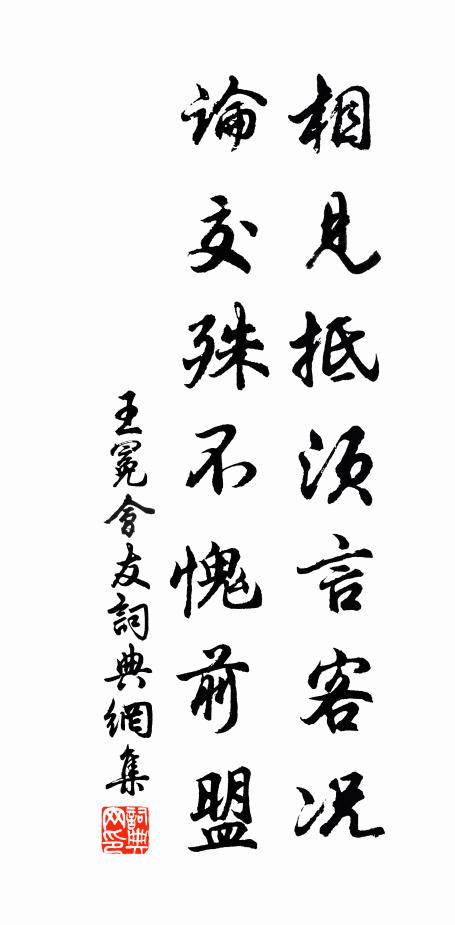 相見抵須言客况
論交殊不愧前盟
王冕會友詞典網集
詞典網印